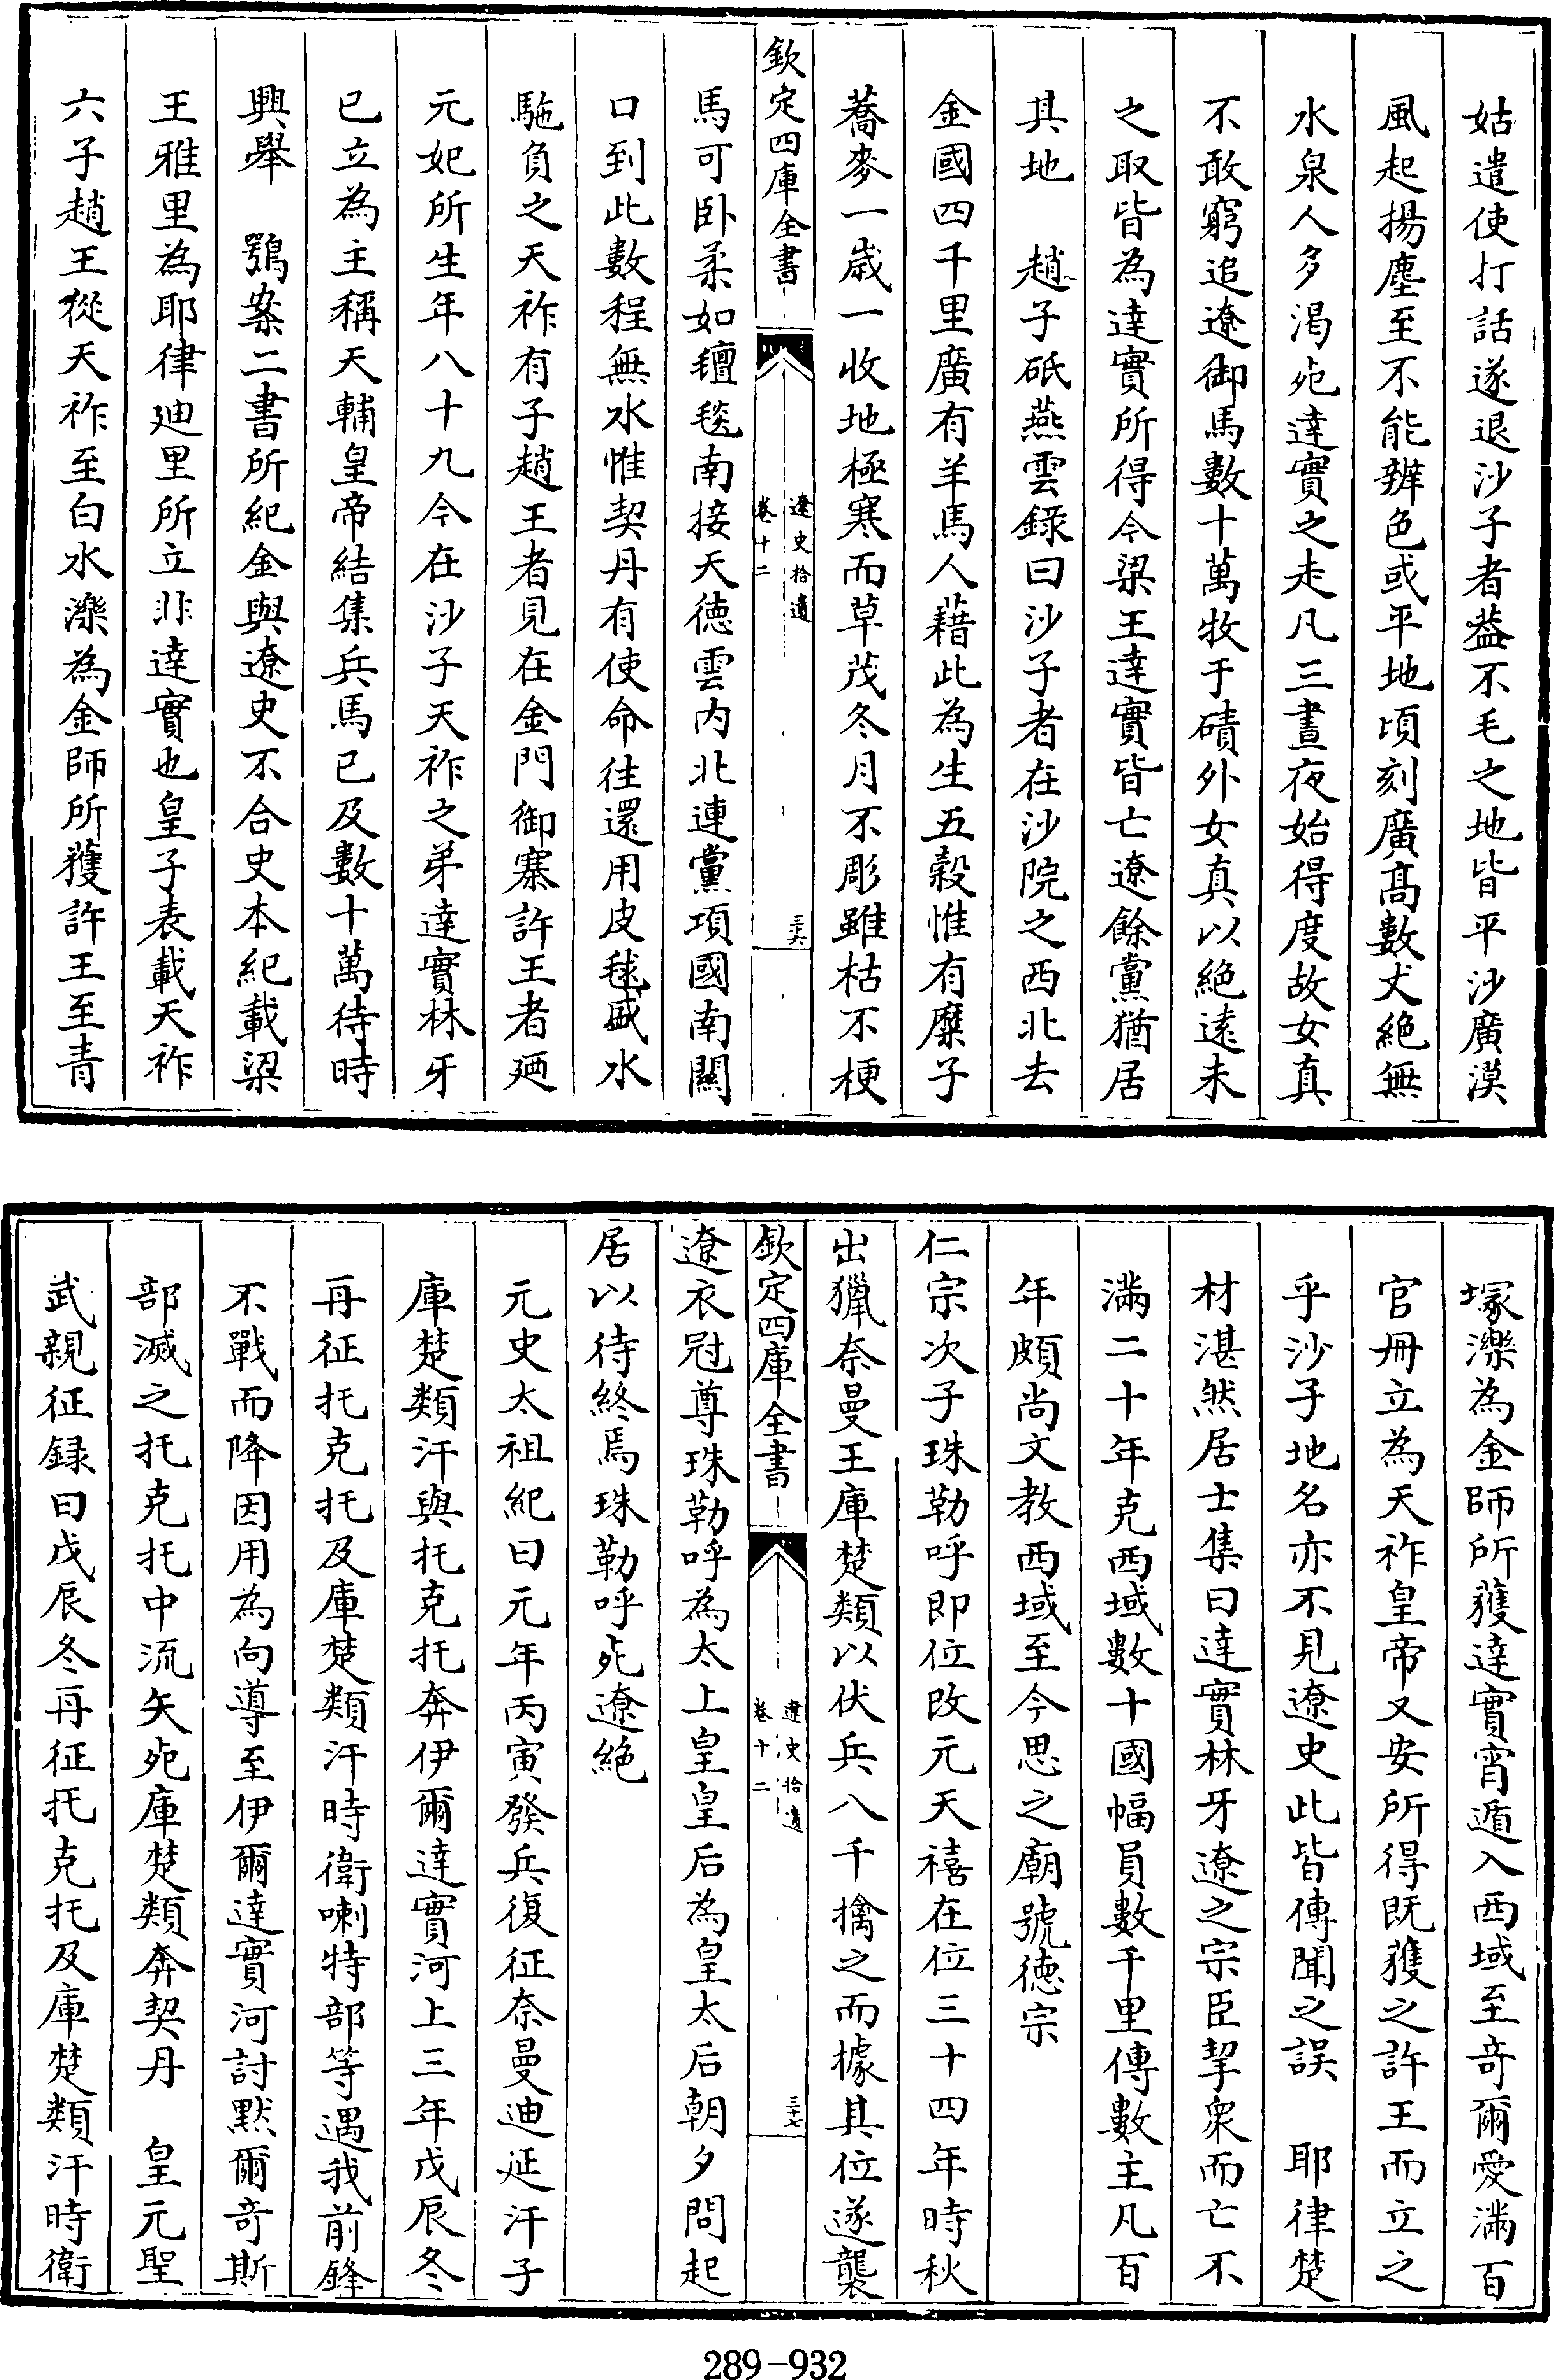 姑遣使打話遂退沙子者葢不毛之地皆平沙廣漠
風起揚塵至不能辨色或平地頃刻廣髙數丈絶無
水泉人多渇死達實之走凡三晝夜始得度故女真
不敢窮追遼御馬數十萬牧于磧外女真以絶逺未
之取皆為達實所得今梁王達實皆亡遼餘黨猶居
其地　趙子砥燕雲錄曰沙子者在沙院之西北去
金國四千里廣有羊馬人藉此為生五榖惟有糜子
蕎麥一歲一收地極寒而草茂冬月不彫雖枯不梗
欽定四庫全書
遼史拾遺
卷十二
三十六
馬可卧柔如氊毯南接天徳雲内北連黨項國南闗
口到此數程無水惟契丹有使命往還用皮毬盛水
駞負之天祚有子趙王者見在金門御寨許王者廼
元妃所生年八十九今在沙子天祚之弟達實林牙
已立為主稱天輔皇帝結集兵馬已及數十萬待時
興舉　鶚案二書所紀金與遼史不合史本紀載梁
王雅里為耶律廸里所立非達實也皇子表載天祚
六子趙王從天祚至白水濼為金師所獲許王至青
塚濼為金師所獲達實宵遁入西域至竒爾愛滿百
官冊立為天祚皇帝又安所得既獲之許王而立之
乎沙子地名亦不見遼史此皆傳聞之誤　耶律楚
材湛然居士集曰達實林牙遼之宗臣挈衆而亡不
滿二十年克西域數十國幅員數千里傳數主凡百
年頗尚文教西域至今思之廟號徳宗
仁宗次子珠勒呼即位改元天禧在位三十四年時秋
出獵奈曼王庫楚類以伏兵八千擒之而據其位遂襲
欽定四庫全書
遼史拾遺
卷十二
三十七
遼衣冠尊珠勒呼為太上皇皇后為皇太后朝夕問起
居以待終焉珠勒呼死遼絶
元史太祖紀曰元年丙寅發兵復征奈曼廸延汗子
庫楚類汗與托克托奔伊爾達實河上三年戊辰冬
再征托克托及庫楚類汗時衛喇特部等遇我前鋒
不戰而降因用為向導至伊爾達實河討黙爾竒斯
部滅之托克托中流矢死庫楚類奔契丹　皇元聖
武親征録曰戊辰冬再征托克托及庫楚類汗時衛
289-932